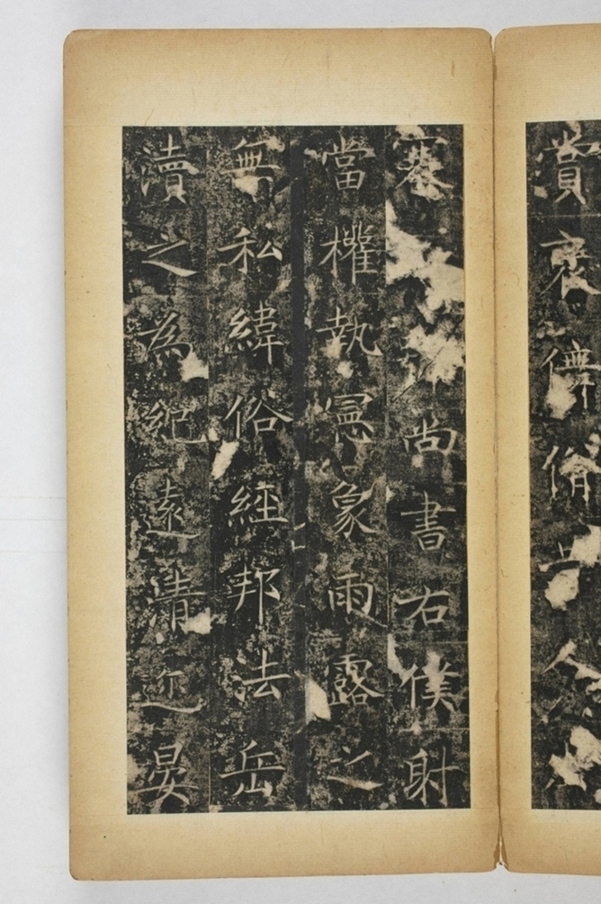 賞褒
尚書右僕射
當權執憲象雨露之
無私緯俗經邦法岳
瀆之為紀遠清迩晏